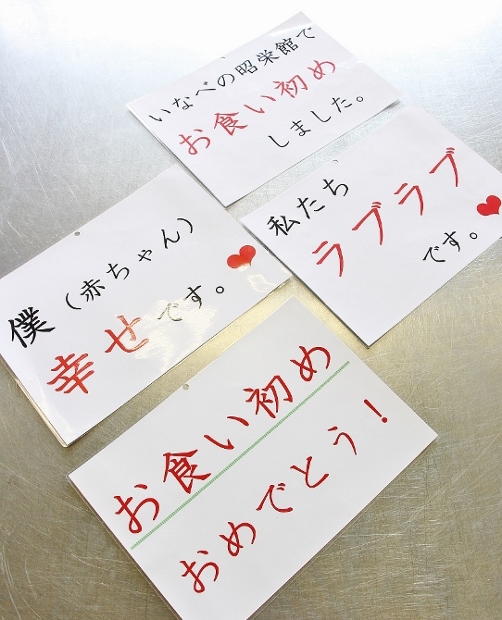 いなべの昭栄館で
お食い初め
しました。
私たち
ラブラブ
です。
僕(赤ちゃん)
幸せです。
お食い初め
おめでとう!